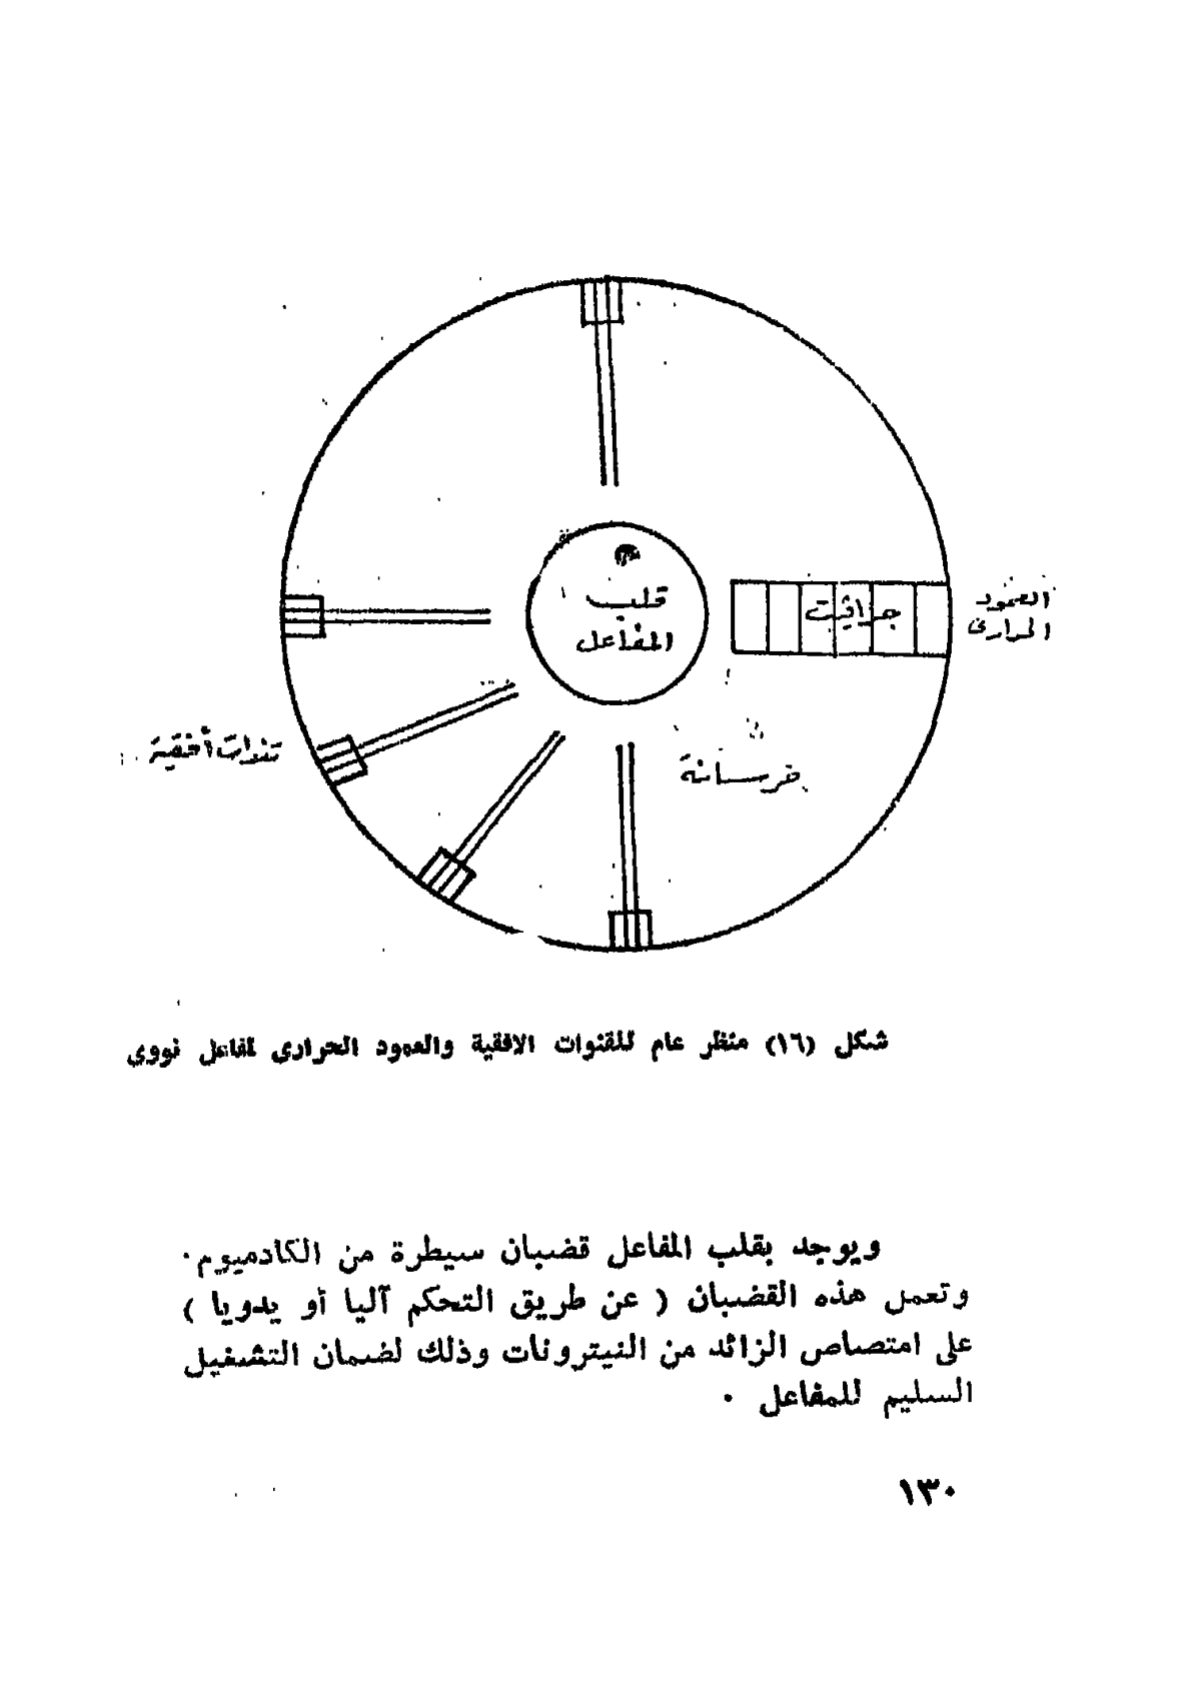 قلب
المفاعل
جرافيت
العمود
الحرارى
قنوات أفقية
خرسانة
شكل (١٦) منظر عام للقنوات الافقية والعمود الحرارى لمفاعل نووى
ويوجد بقلب المفاعل قضبان سيطرة من الكادميوم ٠
وتعمل هذه القضبان ( عن طريق التحكم آليا أو يدويا )
على امتصاص الزائد من النيترونات وذلك لضمان التشغيل
السليم للمفاعل ٠
١٣٠